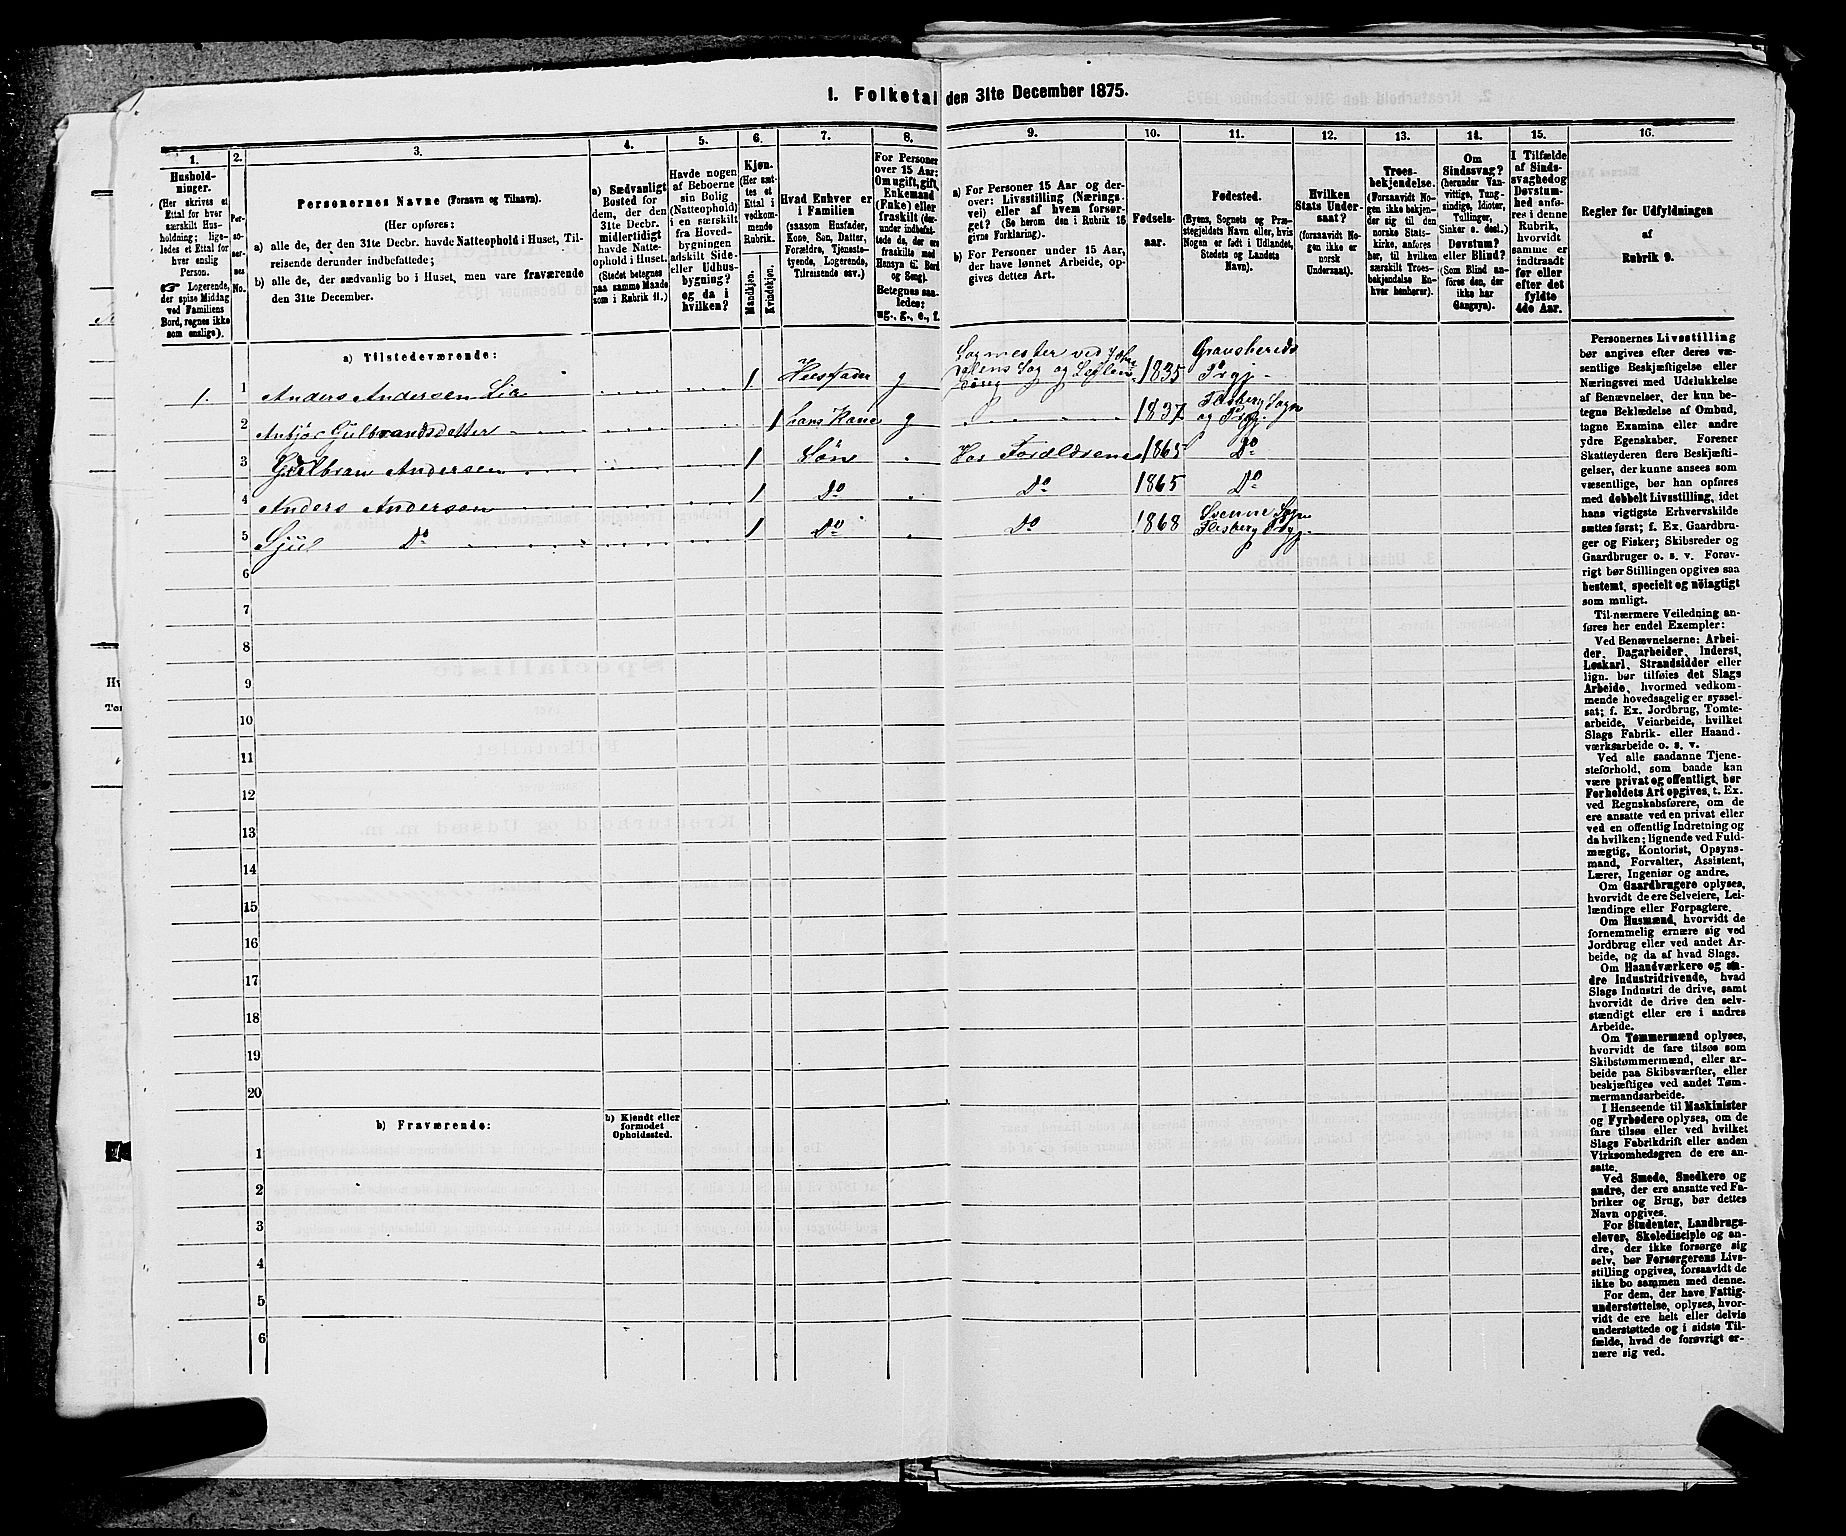 1. Folketal den 31te December 1875.
1.
2.
3.
4.
5.
6.
7.
8.
9.
10.
11.
12.
13.
14.
15.
16.
Hushold-
ninger.
(Her skrives et
Ettal for hver
særskilt Hus-
holdning; lige-
ledes et Ettal for
hver enslig
Person.
☞ Logerende,
der spise Middag
ved Familiens
Bord, regnes ikke
som enslige).
Per-
so-
ner-
nes
No.
Personernes Navne (Fornavn og Tilnavn).
(Her opføres:
a) alle de, der den 31te Decbr. havde Natteophold i Huset, Til-
reisende derunder indbefattede;
b) alle de, der sædvanlig bo i Huset, men vare fraværende
den 31te December.
a) Sædvanligt
Bosted for
dem, der den
31te Decbr.
midlertidigt
havde Natte-
ophold i Huset.
(Stedet betegnes
paa samme Maade
som i Rubrik 11.)
Havde nogen
af Beboerne
sin Bolig
(Natteophold)
i en særskilt
fra Hoved-
bygningen
adskilt Side-
eller Udhus-
bygning?
og da i
hvilken?
Kjøn.
(Her sæt-
tes et
Ettal i
vedkom-
mende
Rubrik.
Mandkjøn.
Kvindekjøn.
Hvad Enhver er
i Familien
(saasom Husfader,
Kone, Søn, Datter,
Forældre, Tjeneste-
tyende, Logerende,
Tilreisende osv.)
For Personer
over 15 Aar:
Om ugift, gift,
Enkemand
(Enke) eller
fraskilt (der-
under indbefat-
tede de, der ere
fraskilte med
Hensyn til Bord
og Seng).
Betegnes saa-
ledes:
ug., g., e., f.
a) For Personer 15 Aar og der-
over: Livsstilling (Nærings-
vei) eller af hvem forsør-
get? (Se herom den i Rubrik 16
givne Forklaring).
b) For Personer under 15 Aar,
der have lønnet Arbeide, op-
gives dettes Art.
Fødsels-
aar.
Fødested.
(Byens, Sognets og Præ-
stegjeldets Navn eller, hvis
Nogen er født i Udlandet,
Stedets og Landets
Navn).
Hvilken
Stats Under-
saat?
(foraavidt No-
gen ikke er
norsk
Undersaat).
Troes-
bekjendelse.
(Forsaavidt No-
gen ikke bekjen-
der sig til den
norske Stats-
kirke, anføres
her, til hvilken
særskilt Troes-
bekjendelse En-
hver henhører).
Om
Sindssvag?
(herunder Van-
vittige, Tung-
sindige, Idioter,
Tullinger,
Sinker o. desl.)
Døvstum?
eller Blind?
(Som Blind an-
føres den, der
ikke har
Gangsyn).
I Tilfælde
af Sinds-
svaghed og
Døvstum-
hed anfø-
res i denne
Rubrik,
hvorvidt
samme er
indtraadt
før eller
efter det
fyldte
4de Aar.
Regler for Udfyldningen
af
Rubrik 9.
a) Tilstedeværende:
1. 1 Anders Andersen Lia 1 Husfader g Sagmester ved Jo... Sag og 1835 Gransherreds Prgj.
2 Anbjør Gulbrandsdatter 1 hans Kone g 1837 Flesberg Sogn og Prgj.
3 Gulbran Andersen 1 Søn Hos Forældrene 1865 Do
4 Anders Andersen 1 Do Do 1865 Do
5 Sjul Do 1 Do Do 1868 Svenne Sogn Flesberg Prgj.
6
7
8
9
10
11
12
13
14
15
16
17
18
19
20
b) Fraværende:
b) Kjendt eller
formodet
Opholdssted.
1
2
3
4
5
6
Personernes Livsstilling
bør angives efter deres væ-
sentlige Beskjæftigelse eller
Næringsvei med Udelukkelse
af Benævnelser, der kun be-
tegne Beklædelse af Ombud,
tagne Examina eller andre
ydre Egenskaber. Forener
Skatteyderen flere Beskjæfti-
gelser, der kunne ansees som
væsentlige, bør han opføres
med dobbelt Livsstilling, idet
hans vigtigste Erhvervskilde
sættes først; f. Ex. Gaardbru-
ger og Fisker; Skibsreder og
Gaardbruger o. s. v. Forøv-
rigt bør Stillingen opgives saa
bestemt, specielt og nöiagtigt
som muligt.
Til nærmere Veiledning an-
føres her endel Exempler:
Ved Benævnelserne: Arbei-
der, Dagarbeider, Inderst,
Løskarl, Strandsidder eller
lign. bør tilføies det Slags
Arbeide, hvormed vedkom-
mende hovedsagelig er syssel-
sat; f. Ex. Jordbrug, Tomte-
arbeide, Veiarbeide, hvilket
Slags Fabrik- eller Haand-
værksarbeide o. s. v.
Ved alle saadanne Tjene-
steforhold, som baade kan
være privat og offentligt, bør
Forholdets Art opgives, t. Ex.
ved Regnskabsførere, om de
ere ansatte ved en privat eller
ved en offentlig Indretning og
da hvilken; lignende ved Fuld-
mægtig, Kontorist, Opsyns-
mand, Forvalter, Assistent,
Lærer, Ingeniør og andre.
Om Gaardbrugere oplyses,
hvorvidt de ere Selveiere, Lei-
lændinge eller Forpagtere.
Om Husmænd, hvorvidt de
fornemmelig ernære sig ved
Jordbrug eller ved andet Ar-
beide, og da af hvad Slags.
Om Haandværkere og an-
dre Industridrivende, hvad
Slags Industri de drive, samt
hvorvidt de drive den selv-
stændigt eller ere i andres
Arbeide.
Om Tømmermænd oplyses,
hvorvidt de fare tilsøs som
Skibstømmermænd, eller ar-
beide paa Skibsværfter, eller
beskjæftiges ved andet Tøm-
mermandsarbeide.
I Henseende til Maskinister
og Fyrbødere oplyses, om de
fare tilsøs eller ved hvilket
Slags Fabrikdrift eller anden
Virksomhedsgren de ere an-
satte.
Ved Smede, Snedkere og
andre, der ere ansatte ved Fa-
briker og Brug, bør dettes
Navn opgives.
For Studenter, Landbrugs-
elever, Skoledisciple og an-
dre, der ikke forsørge sig
selv, bør Forsørgerens Livs-
stilling opgives, forsaavidt de
ikke bo sammen med denne.
For dem, der have Fattig-
understøttelse, oplyses, hvor-
vidt de ere helt eller delvis
understøttede og i sidste Til-
fælde, hvad de forøvrigt er-
nære sig ved.